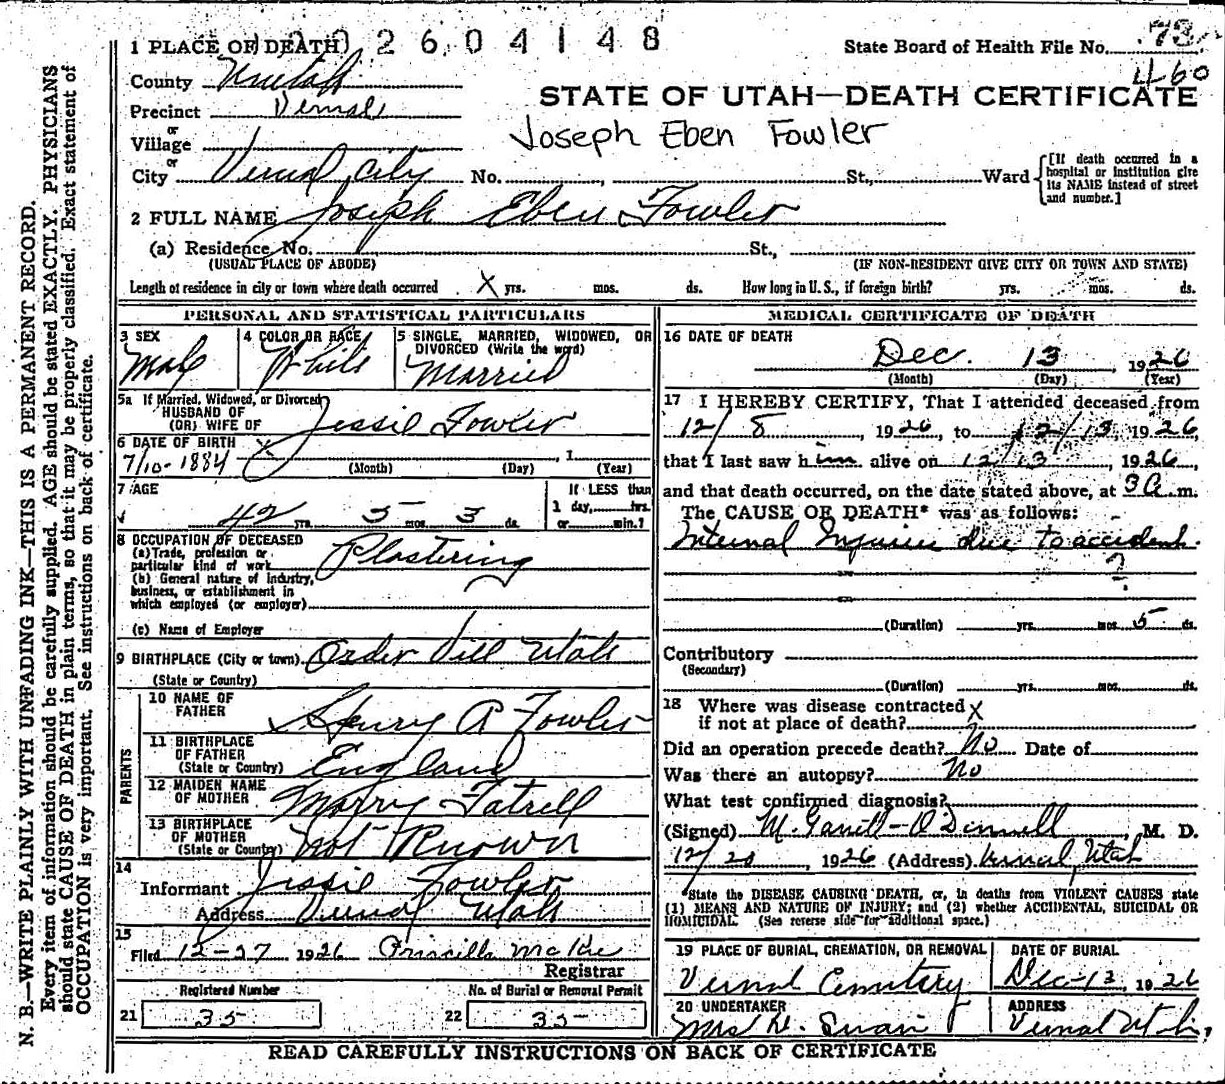 N. B.—WRITE PLAINLY WITH UNFADING INK—THIS IS A PERMANENT RECORD.
Every item of information should be carefully supplied. AGE should be stated EXACTLY. PHYSICIANS
should state CAUSE OF DEATH in plain terms, so that it may be properly classified. Exact statement of
OCCUPATION is very important. See instructions on back of certificate.
2604148
1 PLACE OF DEATH
State Board of Health File No. 73
460
County Uintah
Precinct Vernal
STATE OF UTAH—DEATH CERTIFICATE
or
Village
Joseph Eben Fowler
or
City Vernal City No. , St., Ward
[If death occurred in a
hospital or institution give
its NAME instead of street
and number.]
2 FULL NAME Joseph Eben Fowler
(a) Residence No. St.,
(USUAL PLACE OF ABODE) (IF NON-RESIDENT GIVE CITY OR TOWN AND STATE)
Length of residence in city or town where death occurred X yrs. mos. ds. How long in U. S., if foreign birth? yrs. mos. ds.
PERSONAL AND STATISTICAL PARTICULARS
3 SEX
Male
4 COLOR OR RACE
White
5 SINGLE, MARRIED, WIDOWED, OR
DIVORCED (Write the word)
Married
5a If Married, Widowed, or Divorced
HUSBAND OF
(OR) WIFE OF Jessie Fowler
6 DATE OF BIRTH
7/10-1884 , 1
(Month) (Day) (Year)
7 AGE
42 yrs. 5 mos. 3 ds.
If LESS than
1 day, hrs.
or min.?
8 OCCUPATION OF DECEASED
(a) Trade, profession or
particular kind of work Plastering
(b) General nature of industry,
business, or establishment in
which employed (or employer)
(c) Name of Employer
9 BIRTHPLACE (City or town) Order Vill Utah
(State or Country)
PARENTS
10 NAME OF
FATHER Henry A Fowler
11 BIRTHPLACE
OF FATHER
(State or Country) England
12 MAIDEN NAME
OF MOTHER Marry Fatrell
13 BIRTHPLACE
OF MOTHER
(State or Country) Not Known
14
Informant Jessie Fowler
Address Vernal Utah
15
Filed 12-27 1926 Priscilla McKee
Registrar
Registered Number
21 35
No. of Burial or Removal Permit
22 35
MEDICAL CERTIFICATE OF DEATH
16 DATE OF DEATH
Dec. 13, 1926
(Month) (Day) (Year)
17 I HEREBY CERTIFY, That I attended deceased from
12/8, 1926, to 12/13, 1926,
that I last saw him alive on 12/13, 1926,
and that death occurred, on the date stated above, at 3 a. m.
The CAUSE OF DEATH* was as follows:
Internal Injuries due to accident.
?
(Duration) yrs. mos. 5 ds.
Contributory
(Secondary)
(Duration) yrs. mos. ds.
18 Where was disease contracted
if not at place of death? X
Did an operation precede death? No Date of
Was there an autopsy? No
What test confirmed diagnosis?
(Signed) M. , M. D.
12/20, 1926 (Address) Vernal, Utah
*State the DISEASE CAUSING DEATH, or, in deaths from VIOLENT CAUSES state
(1) MEANS AND NATURE OF INJURY; and (2) whether ACCIDENTAL, SUICIDAL OR
HOMICIDAL. (See reverse side for additional space.)
19 PLACE OF BURIAL, CREMATION, OR REMOVAL
Vernal Cemetery
DATE OF BURIAL
Dec-13, 1926
20 UNDERTAKER
Mrs D. Swain
ADDRESS
Vernal Utah,
READ CAREFULLY INSTRUCTIONS ON BACK OF CERTIFICATE